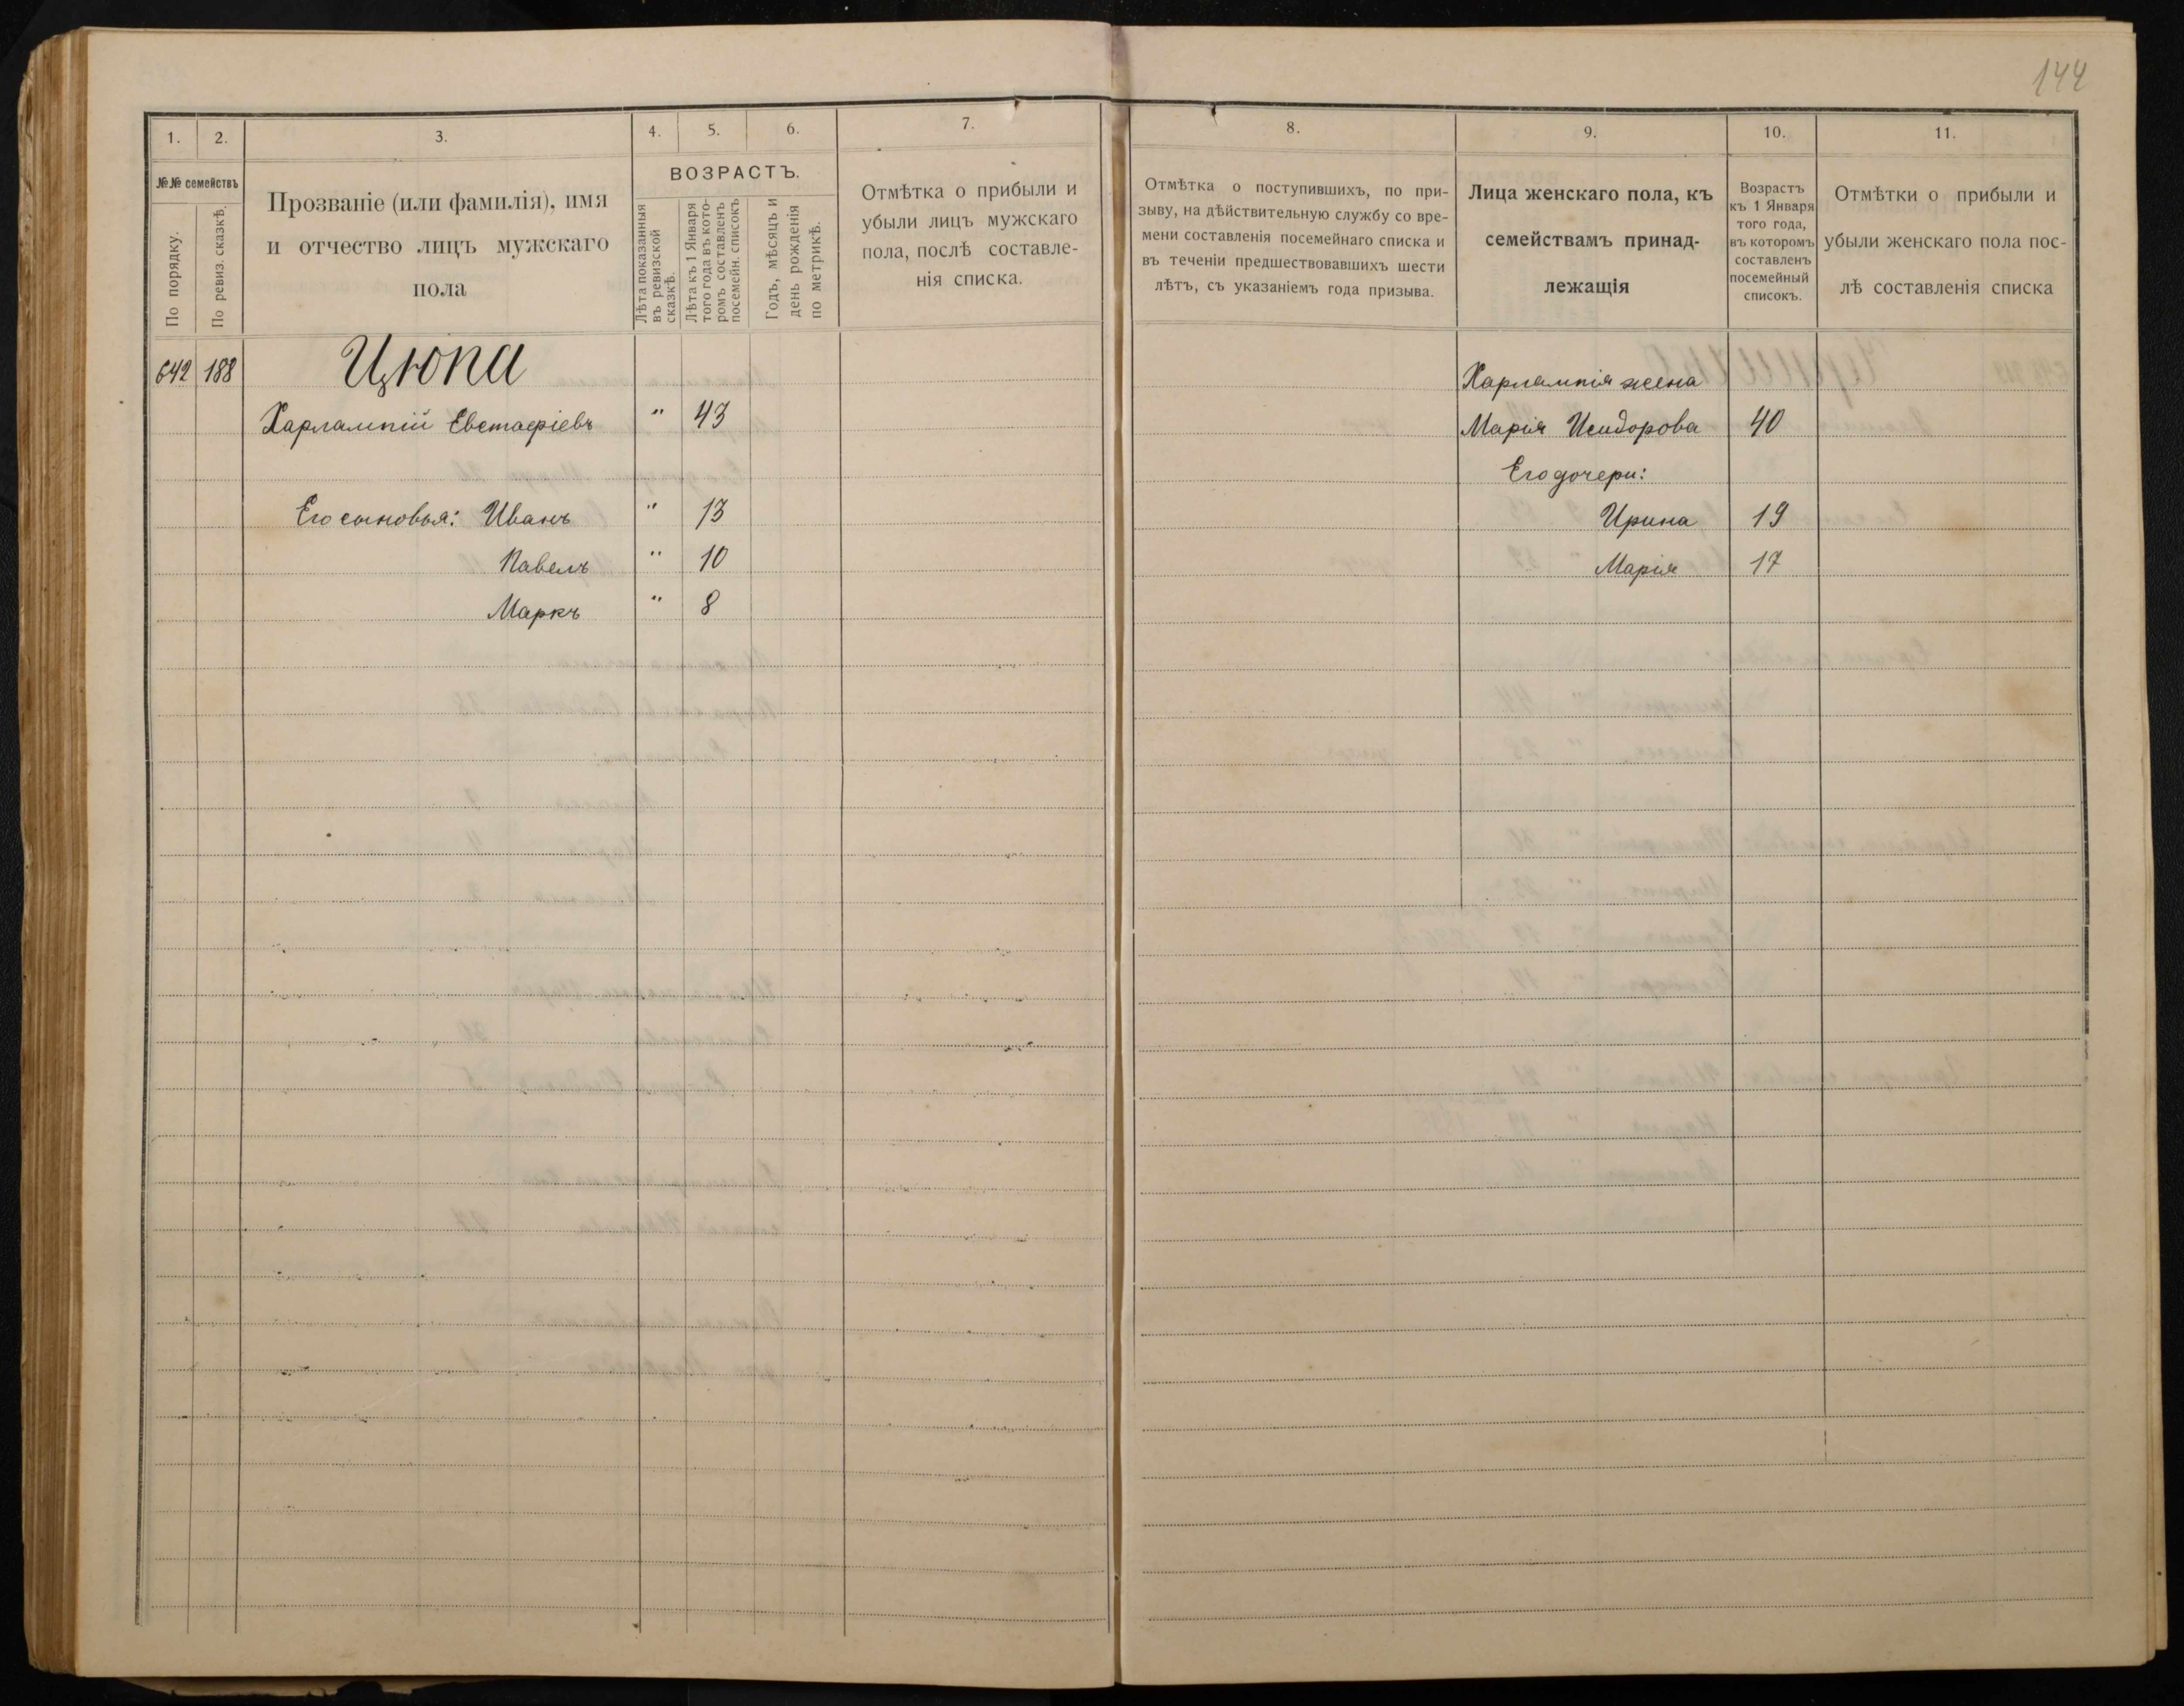 144
1. 2. 3. 4. 5. 6. 7.
№№ семействъ
По порядку.
По ревиз. сказкѣ.
Прозваніе (или фамилія), имя
и отчество лицъ мужскаго
пола
ВОЗРАСТЪ.
Лѣта показанныя
въ ревизской
сказкѣ.
Лѣта къ 1 Января
того года въ кото-
ромъ составленъ
посемейн. списокъ
Годъ, мѣсяцъ и
день рожденія
по метрикѣ.
Отмѣтка о прибыли и
убыли лицъ мужскаго
пола, послѣ составле-
нія списка.
642 188 Цюпа
Харлампій Евстафіевъ " 43
Его сыновья: Иванъ " 13
Павелъ " 10
Маркъ " 8
8. 9. 10. 11.
Отмѣтка о поступившихъ, по при-
зыву, на дѣйствительную службу со вре-
мени составленія посемейнаго списка и
въ теченіи предшествовавшихъ шести
лѣтъ, съ указаніемъ года призыва.
Лица женскаго пола, къ
семействамъ принад-
лежащія
Возрастъ
къ 1 Января
того года,
въ которомъ
составленъ
посемейный
списокъ.
Отмѣтки о прибыли и
убыли женскаго пола пос-
лѣ составленія списка
Харлампія жена
Марія Исидорова 40
Его дочери:
Ирина 19
Марія 17